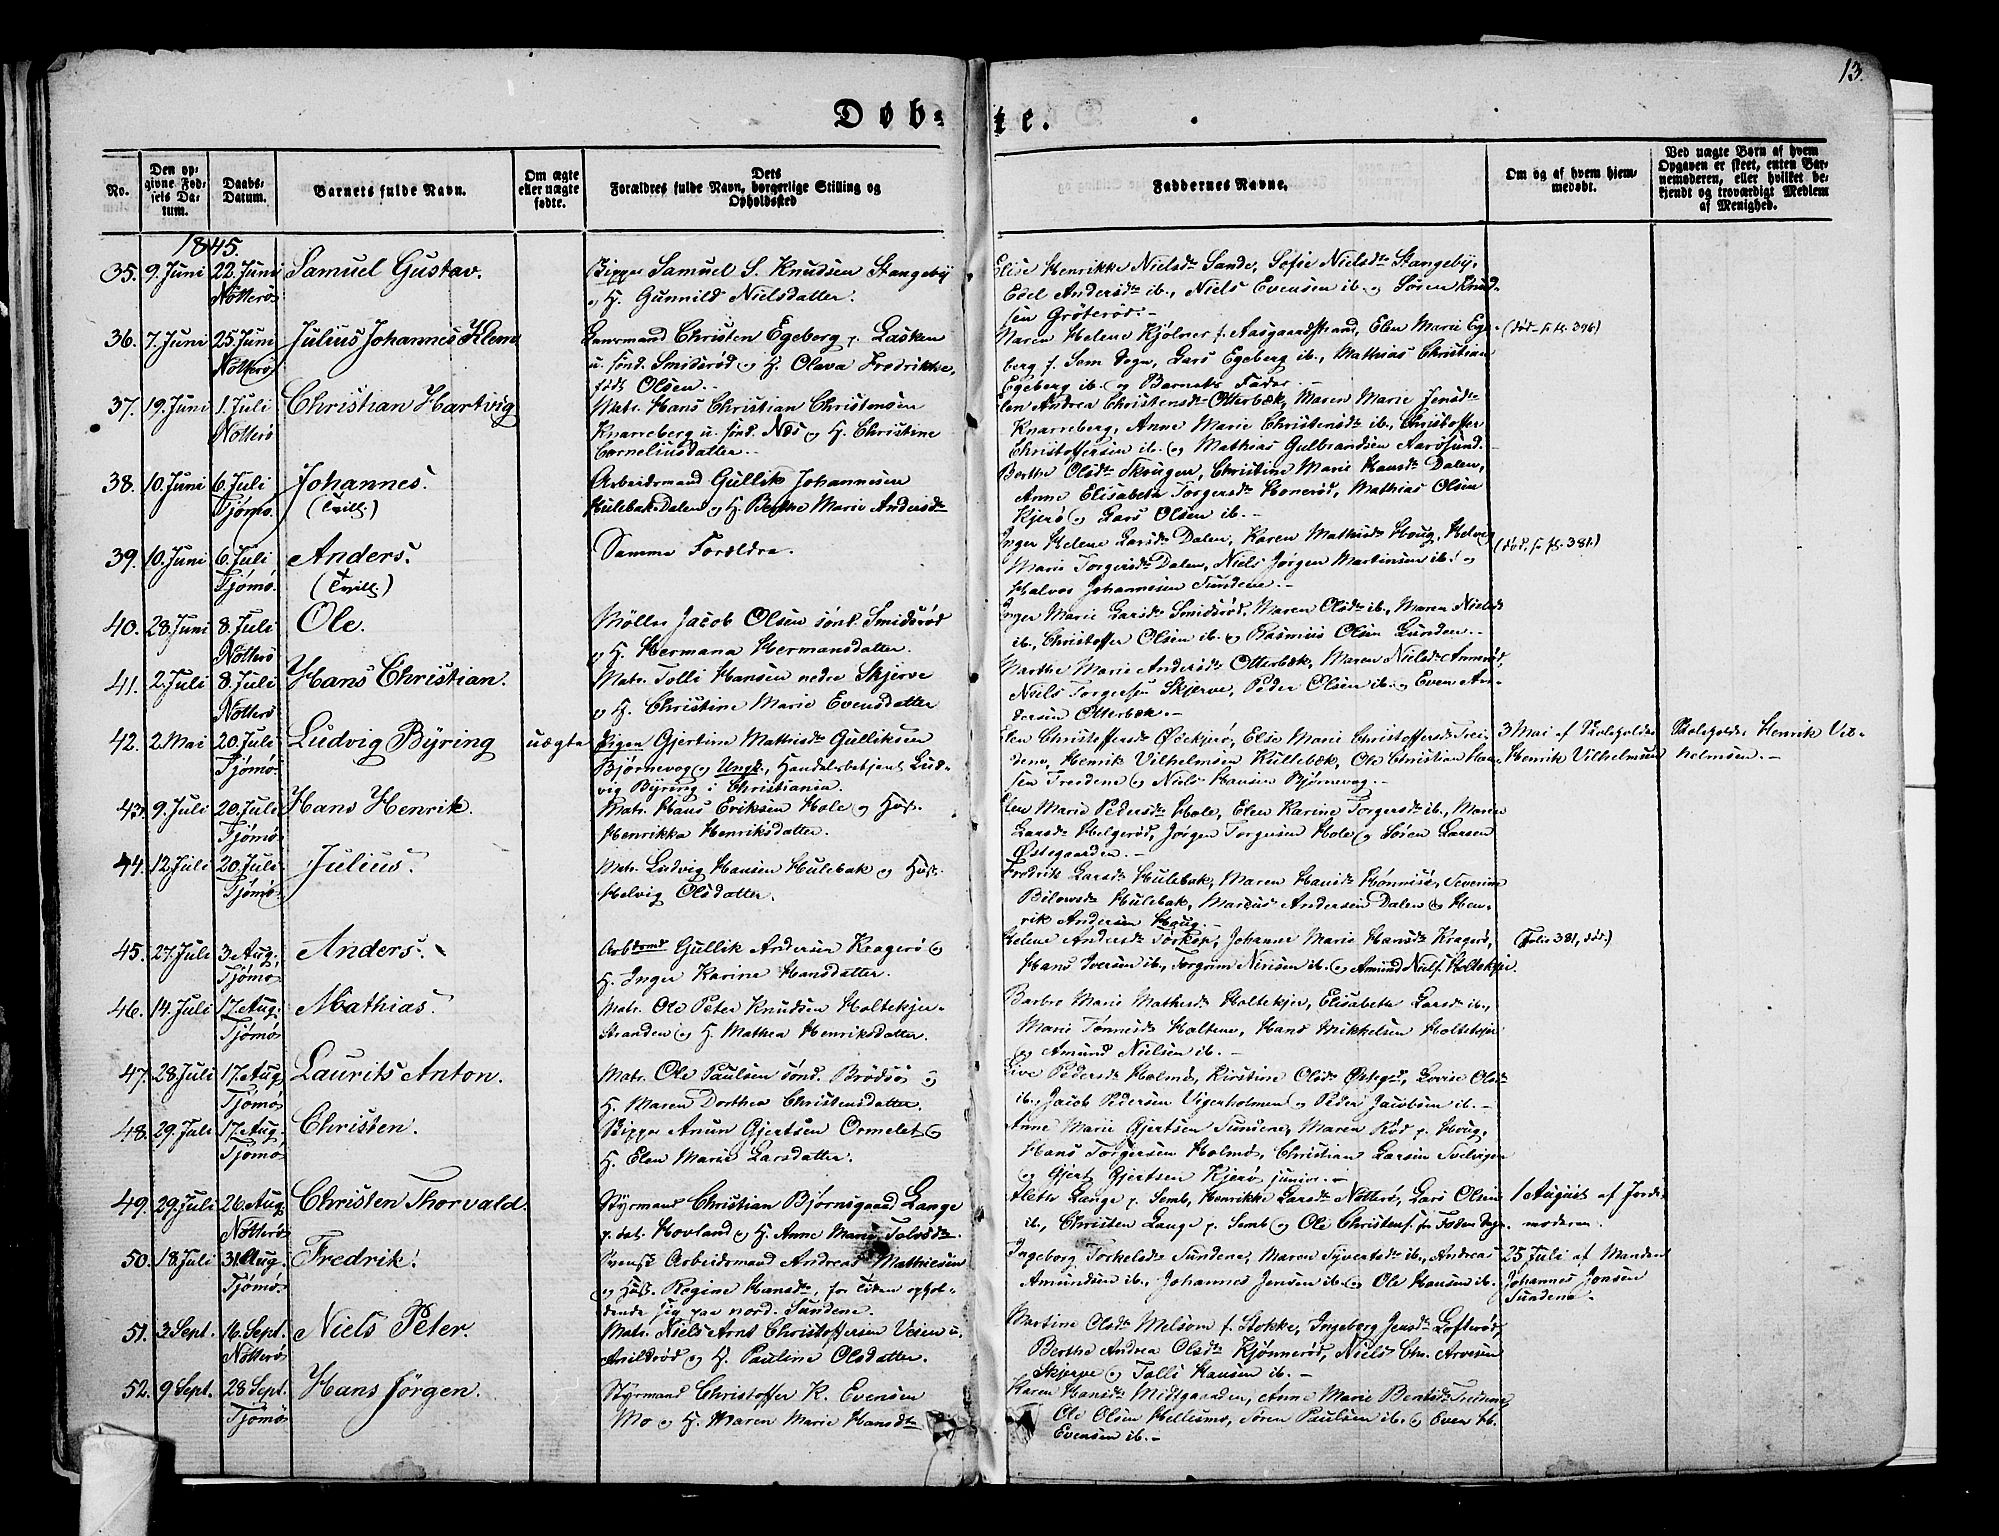 13.
Døb-te.
No.
Den opgivne Fødsels Datum.
Daabs-Datum.
Barnets fulde Navn.
Om ægte eller uægte fødte.
Dets Forældres fulde Navn, borgerlige Stilling og Opholdssted
Faddernes Navne.
Om og af hvem hjemmedøbt.
Ved uægte Børn af hvem Opgaven er skeet, enten Barnemoderen, eller hvilket bekjendt og troværdigt Medlem af Menighed.
1845.
35. 9. Juni 22. Juni Nötterö Samuel Gustav.
Samuel S. Knudsen Stangeby
og H. Gunnild Nielsdatter.
Elise Henrikke Nielsdr Sande, Sofie Nielsdr Stangeby,
Edel Andersdr ib., Niels Evensen ib. og Sören Knud-
sen Gröteröd.
36. 7. Juni 25. Juni Nötterö Julius Johannes Klem
Christen Egeberg p. Gasken
u. sönd. Smidsröd og H. Olava Fredrikke,
födt Olsen.
Maren Helene Kjölner f. Aasgaardstrand, Elen Marie Ege-
berg f. Sem Sogn, Lars Egeberg ib., Mathias Christian
Egeberg ib. og Barnets Fader.
(död f. fl. 376)
37. 19. Juni 1. Juli Nötterö Christian Hartvig
Matr. Hans Christian Christensen
Knarreberg u. sönd. Næs og H. Christine
Corneliusdatter.
Elen Andrea Christensdr Otterbæk, Maren Marie Jensdr
Knarreberg, Anne Marie Christensdr ib., Christoffer
Christoffersen ib. og Mathias Gulbrandsen Aarösund.
38. 10. Juni 6. Juli Tjömö. Johannes. (Tvill.)
Arbeidsmand Gullik Johannesen
Hulebak Dalen og H. Berthe Marie Andersdr
Berthe Olsdr Skougen, Christine Marie Hansdr Dalen,
Anne Elisabeth Torgersdr Honeröd, Mathias Olsen
Kjerö og Lars Olsen ib.
39. 10. Juni 6. Juli Tjömö. Anders. (Tvill.)
Samme Forældre.
Inger Helene Larsdr Dalen, Karen Mathisdr Houg, Helvig
Marie Torgersdr Dalen, Niels Jörgen Martinsen ib. og
Halvor Johannesen Sundene.
(död. f. fl. 381.)
40. 28. Juni 8. Juli Nötterö Ole.
Möller Jacob Olsen sönd. Smidsröd
og H. Hermana Hermansdatter.
Inger Marie Larsdr Smidsröd, Maren Olsdr ib., Maren Nielsdr
ib., Christoffer Olsen ib. og Rasmus Olsen Lunden.
41. 2. Juli 8. Juli Nötterö Hans Christian.
Matr. Tolli Hansen nedre Skjerve
og H. Christine Marie Evensdatter
Marthe Marie Andersdr Otterbæk, Maren Nielsdr Anneröd,
Niels Torgersen Skjerve, Peder Olsen ib. og Even An-
dersen Otterbæk.
42. 2. Mai 20. Juli Tjömö Ludvig Byring uægte
Pigen Gjertine Mathisdr Gulliksen
Björnevog og Ungk., Handelsbetjent Lud-
vig Byring i Christiania
Elen Christoffersdr Ödekjerö, Else Marie Christoffersdr Tree-
dene, Henrik Vilhelmsen Kullebæk, Ole Christian Han-
sen Treedene og Niels Hansen Björnevog.
3 Mai af Skoleholder
Henrik Vilhelmsen
Skolehold. Henrik Vil-
helmsen.
43. 9. Juli 20. Juli Tjömö. Hans Henrik.
Matr. Hans Eriksen Hole og Hust.
Henrikka Henriksdatter.
Elen Marie Pedersdr Hole, Elen Karine Torgersdr ib., Maren
Larsdr Helgeröd, Jörgen Torgersen Hole og Sören Larsen
Östegaarden.
44. 12. Juli 20. Juli Tjömö. Julius.
Matr. Ludvig Hansen Hulebak og Hust.
Helvig Olsdatter.
Fredrik Larsdr Hulebak, Maren Hansdr Hönnise, Severine
Bilowsdr Hulebak, Marcus Andersen Dalen og Hen-
rik Andersen Houg.
45. 27. Juli 3. Aug. Tjömö Anders.
Arbdsmd Gullik Andersen Kragerö og
H. Inger Karine Hansdatter.
Helene Andersdr Torkop, Johanne Marie Hansdr Kragerö,
Hans Iversen ib., Torgrim Nilsen ib. og Amund Niels. Holtekjær.
(Folie 381, död.)
46. 14. Juli 17. Aug. Tjömö Mathias.
Matr. Ole Peter Knudsen Holtekjer-
stranden og H. Mathea Henriksdatter.
Barbro Marie Mathisdr Holtekjer, Elisabeth Larsdr ib.,
Marie Tönnesdr Holtene, Hans Mikkelsen Holtekjer
og Amund Nielsen ib.
47. 28. Juli 17. Aug. Tjömö Laurits Anton.
Matr. Ole Paulsen sönd. Brödsö og
H. Maren Dorthea Christensdatter.
Live Pedersdr Holmö, Kirstine Olsdr Östegd., Lovise Olsdr
ib., Jacob Pedersen Vigerholmen og Peder Jacobsen ib.
48. 29. Juli 17. Aug. Tjömö Christen.
Skipper Anun Gjertsen Ormelet og
H. Elen Marie Larsdatter.
Anne Marie Gjertsen Sundene, Maren Röd p. Houg,
Hans Torgersen Holmö, Christian Larsen Svelvigen
og Gjert Gjertsen Kjerö junior.
49. 29. Juli 26. Aug. Nötterö Christen Thorvald.
Styrmand Christian Björnsgaard Lange
p. Hovland og H. Anne Marie
Alette Lange p. Semb, Henrikke Larsdr Nötterö, Lars Olsen
ib., Christen Lange p. Semb og Ole Christens.
1 August af Jorde-
moderen.
50. 18. Juli 31. Aug. Tjömö. Fredrik.
Svensk Arbeidsmand Andreas Mathiesen
og Hust. Regine Hansdr, for Tiden ophol-
dende sig paa nord. Sundene.
Ingeborg Torkelsdr Sundene, Maren Syvertsdr ib., Andreas
Amundsen ib., Johannes Jensen ib. og Ole Hansen ib.
25 Juli af Manden
Johannes Jensen
Sundene.
51. 3. Sept. 16. Sept. Nötterö Niels Peter.
Matr. Niels Arnt Christoffersen Veien u.
Arildsröd og H. Pauline Olsdatter.
Martine Olsdr Melsom f. Stokke, Ingeborg Jensdr Lofteröd,
Berthe Andrea Olsdr Kjönneröd, Niels Chr. Arvesen
Skjerve og Tolli Hansen ib.
52. 9. Sept. 28. Sept. Tjömö Hans Jörgen.
Styrmand Christoffer K. Evensen
Mo og H. Maren Marie Hansdr
Karen Hansdr Midtgaarden, Anne Marie Berntsdr Treedene,
Ole Olsen Hellumö, Sören Paulsen ib. og Even H.
Evensen ib.